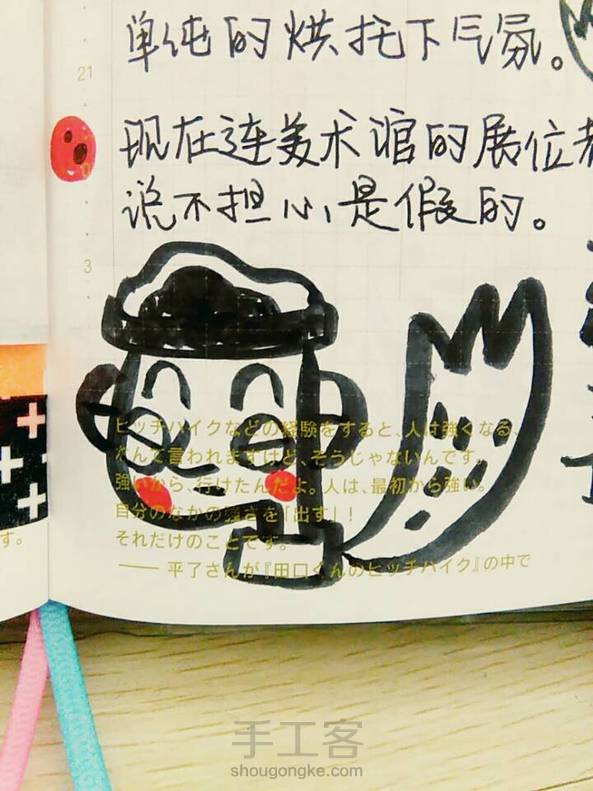 单纯的烘托下气氛。
21
现在连美术馆的展位
说不担心是假的。
3
ヒッチハイクなどの経験をすると、人は強くなる、
なんて言われますけど、そうじゃないんです。
強いから、行けたんだよ。人は、最初から強い。
自分のなかの強さを「出す」!
それだけのことです。
す。
── 平了さんが『田口くんのヒッチハイク』の中で
手工客
shougongke.com